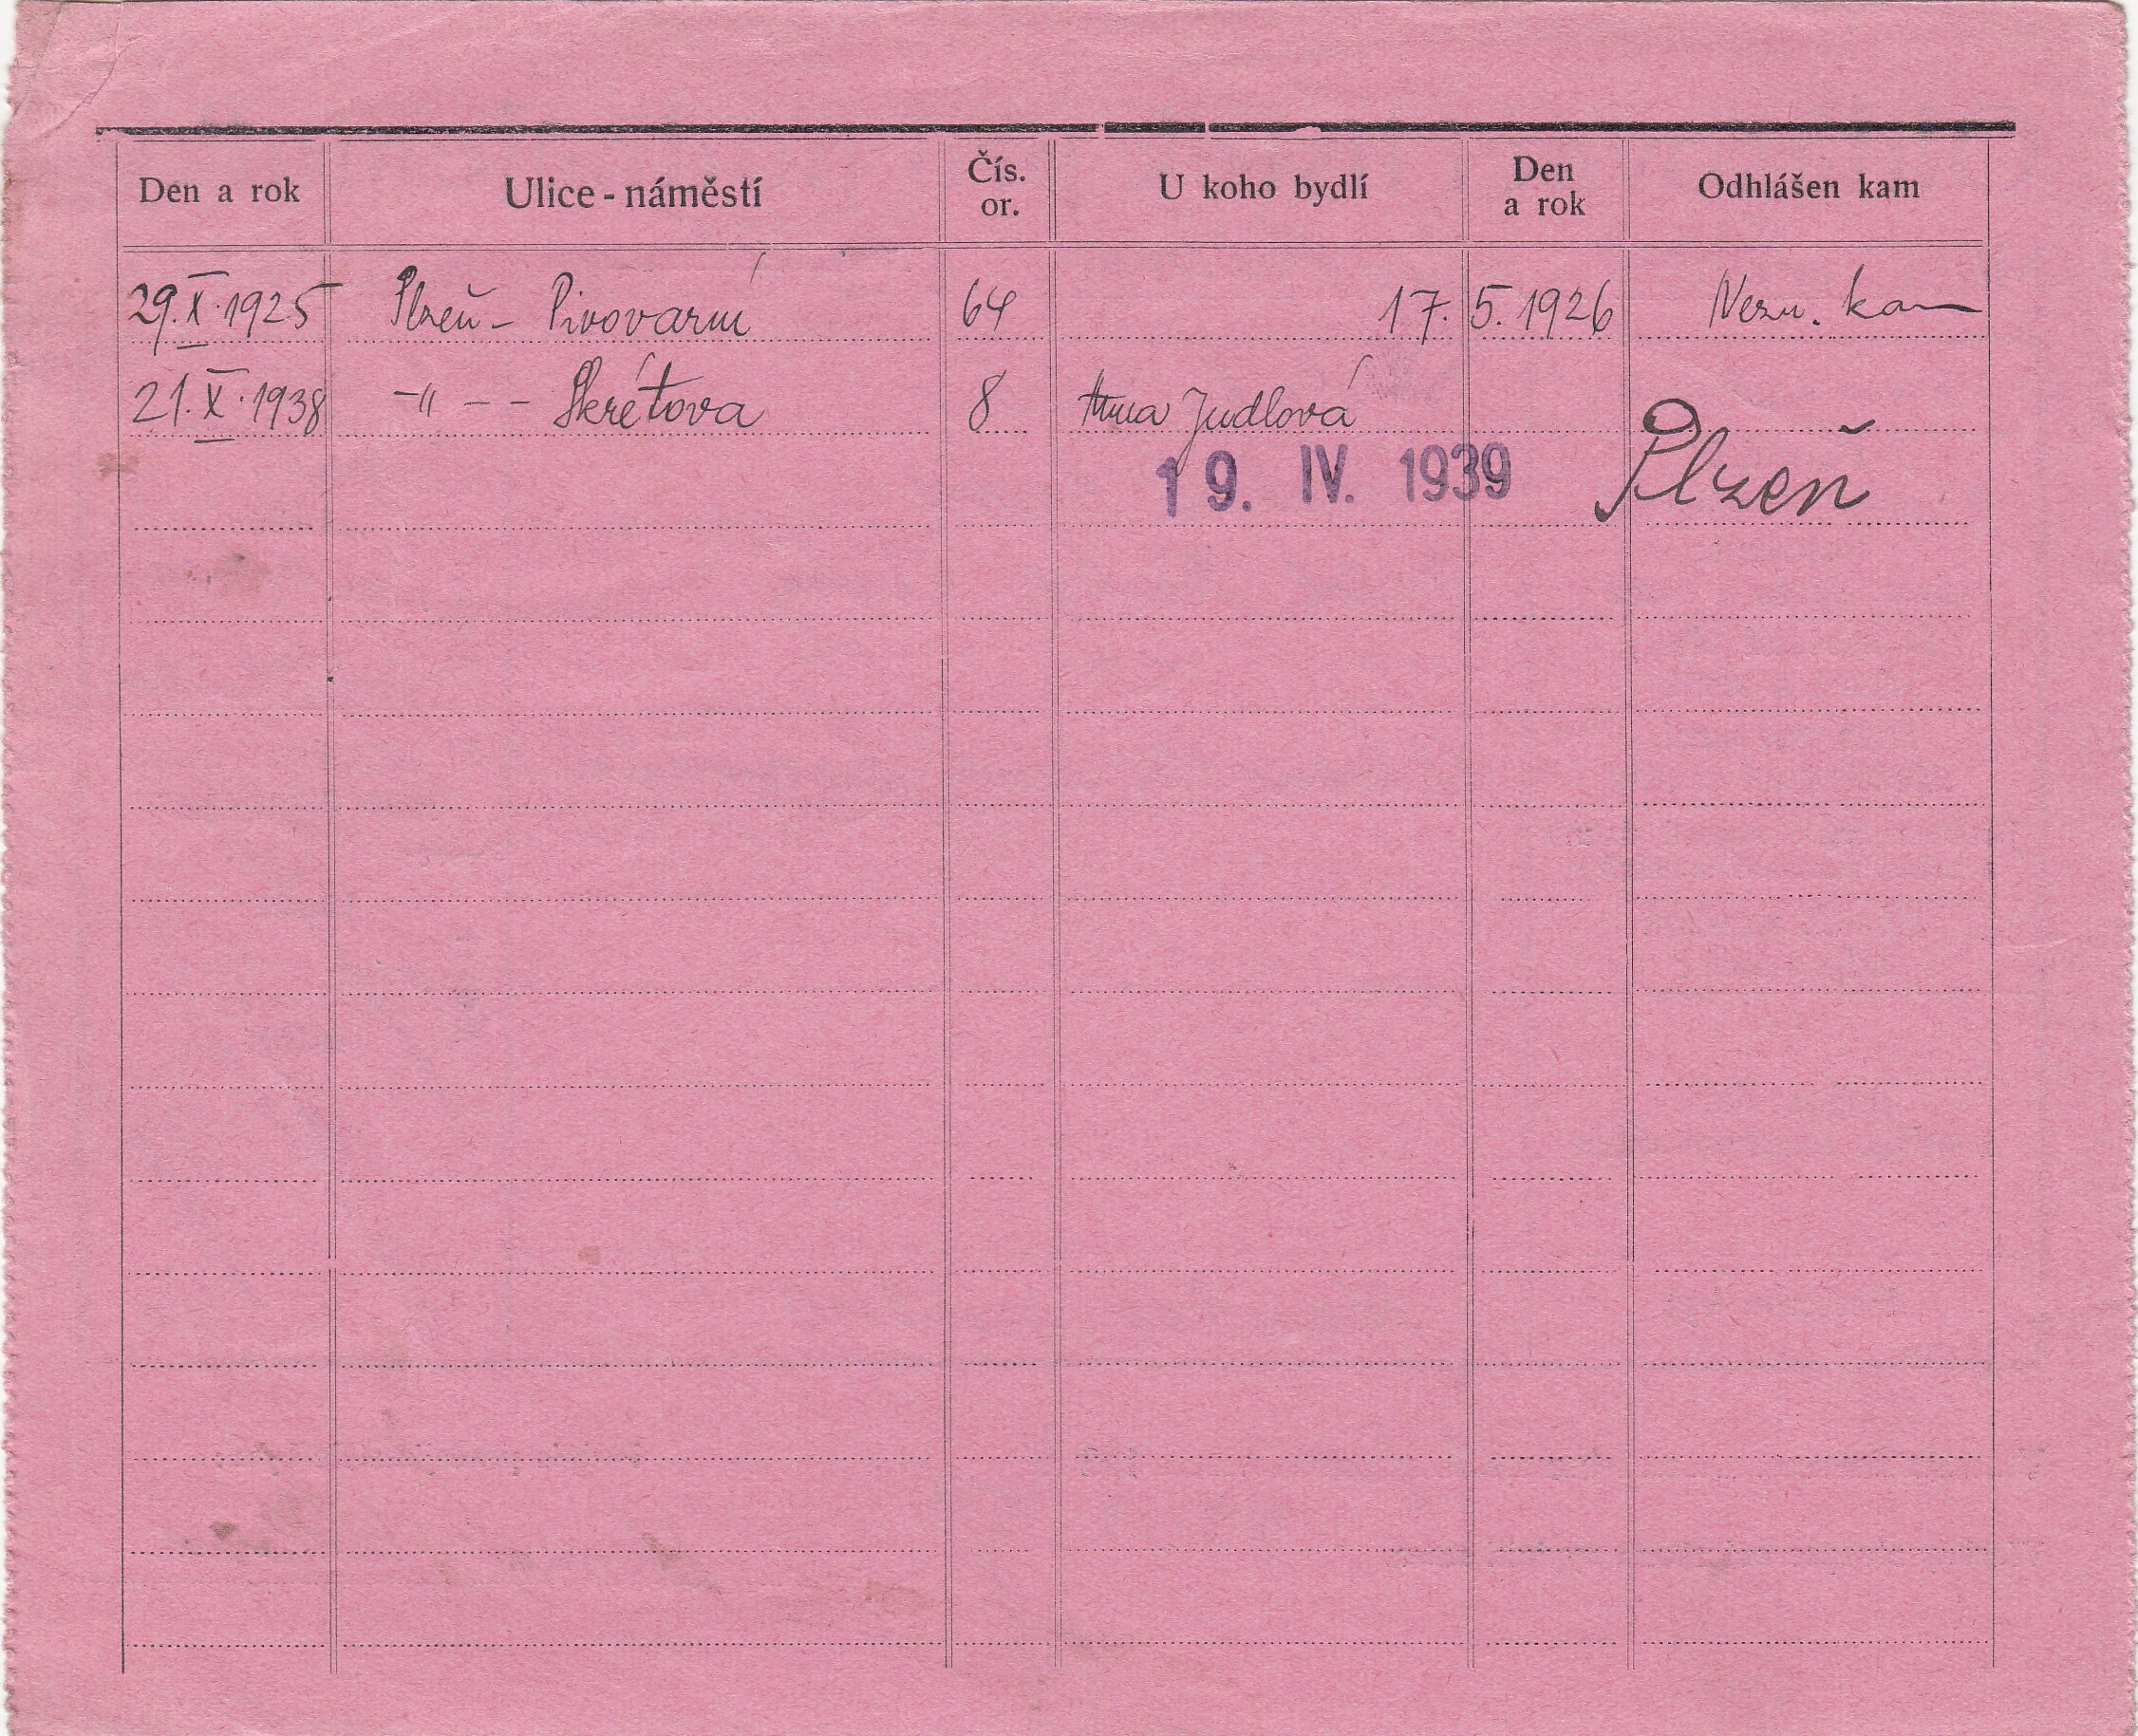 Den a rok Ulice - náměstí Čís. or. U koho bydlí Den a rok Odhlášen kam
29.X.1925 Plzeň - Pivovarní 64 17. 5. 1926 Nezn. kam
21.X.1938 -"- - - Škrétova 8 Anna Judlová
19. IV. 1939 Plzeň